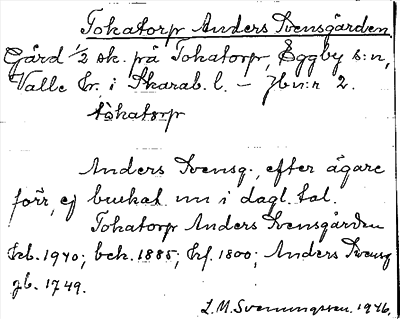 Tokatorp Anders Svensgården
Gård 1/2 sk. på Tokatorp, Eggby s:n,
Valle hr. i Skarab. l. – Jbn:r 2.
tòkatorp
Anders Svensg., efter ägare
förr, ej brukat nu i dagl. tal.
Tokatorp Anders Svensgården
kb. 1940; bek. 1885; hf. 1800; Anders Svensg
jb. 1749.
L. M. Svenungsson. 1946.